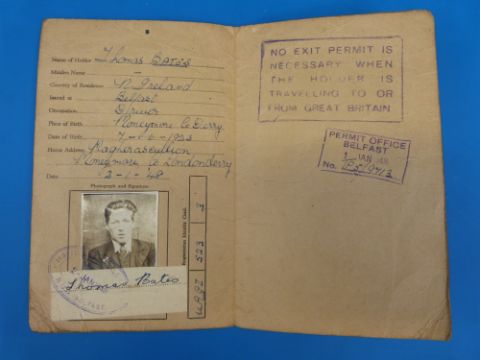 Name of Holder Thomas BATES
Maiden Name —
Country of Residence N. Ireland
Issued at Belfast
Occupation
Place of Birth Moneymore Co Derry.
Date of Birth
Home Address
Moneymore Co Londonderry
Date 2-1-48
Photograph and Signature.
Thomas Bates
Registration Identity Card.
523 3
NO EXIT PERMIT IS
NECESSARY WHEN
THE HOLDER IS
TRAVELLING TO OR
FROM GREAT BRITAIN
PERMIT OFFICE
BELFAST
JAN 1948
No.